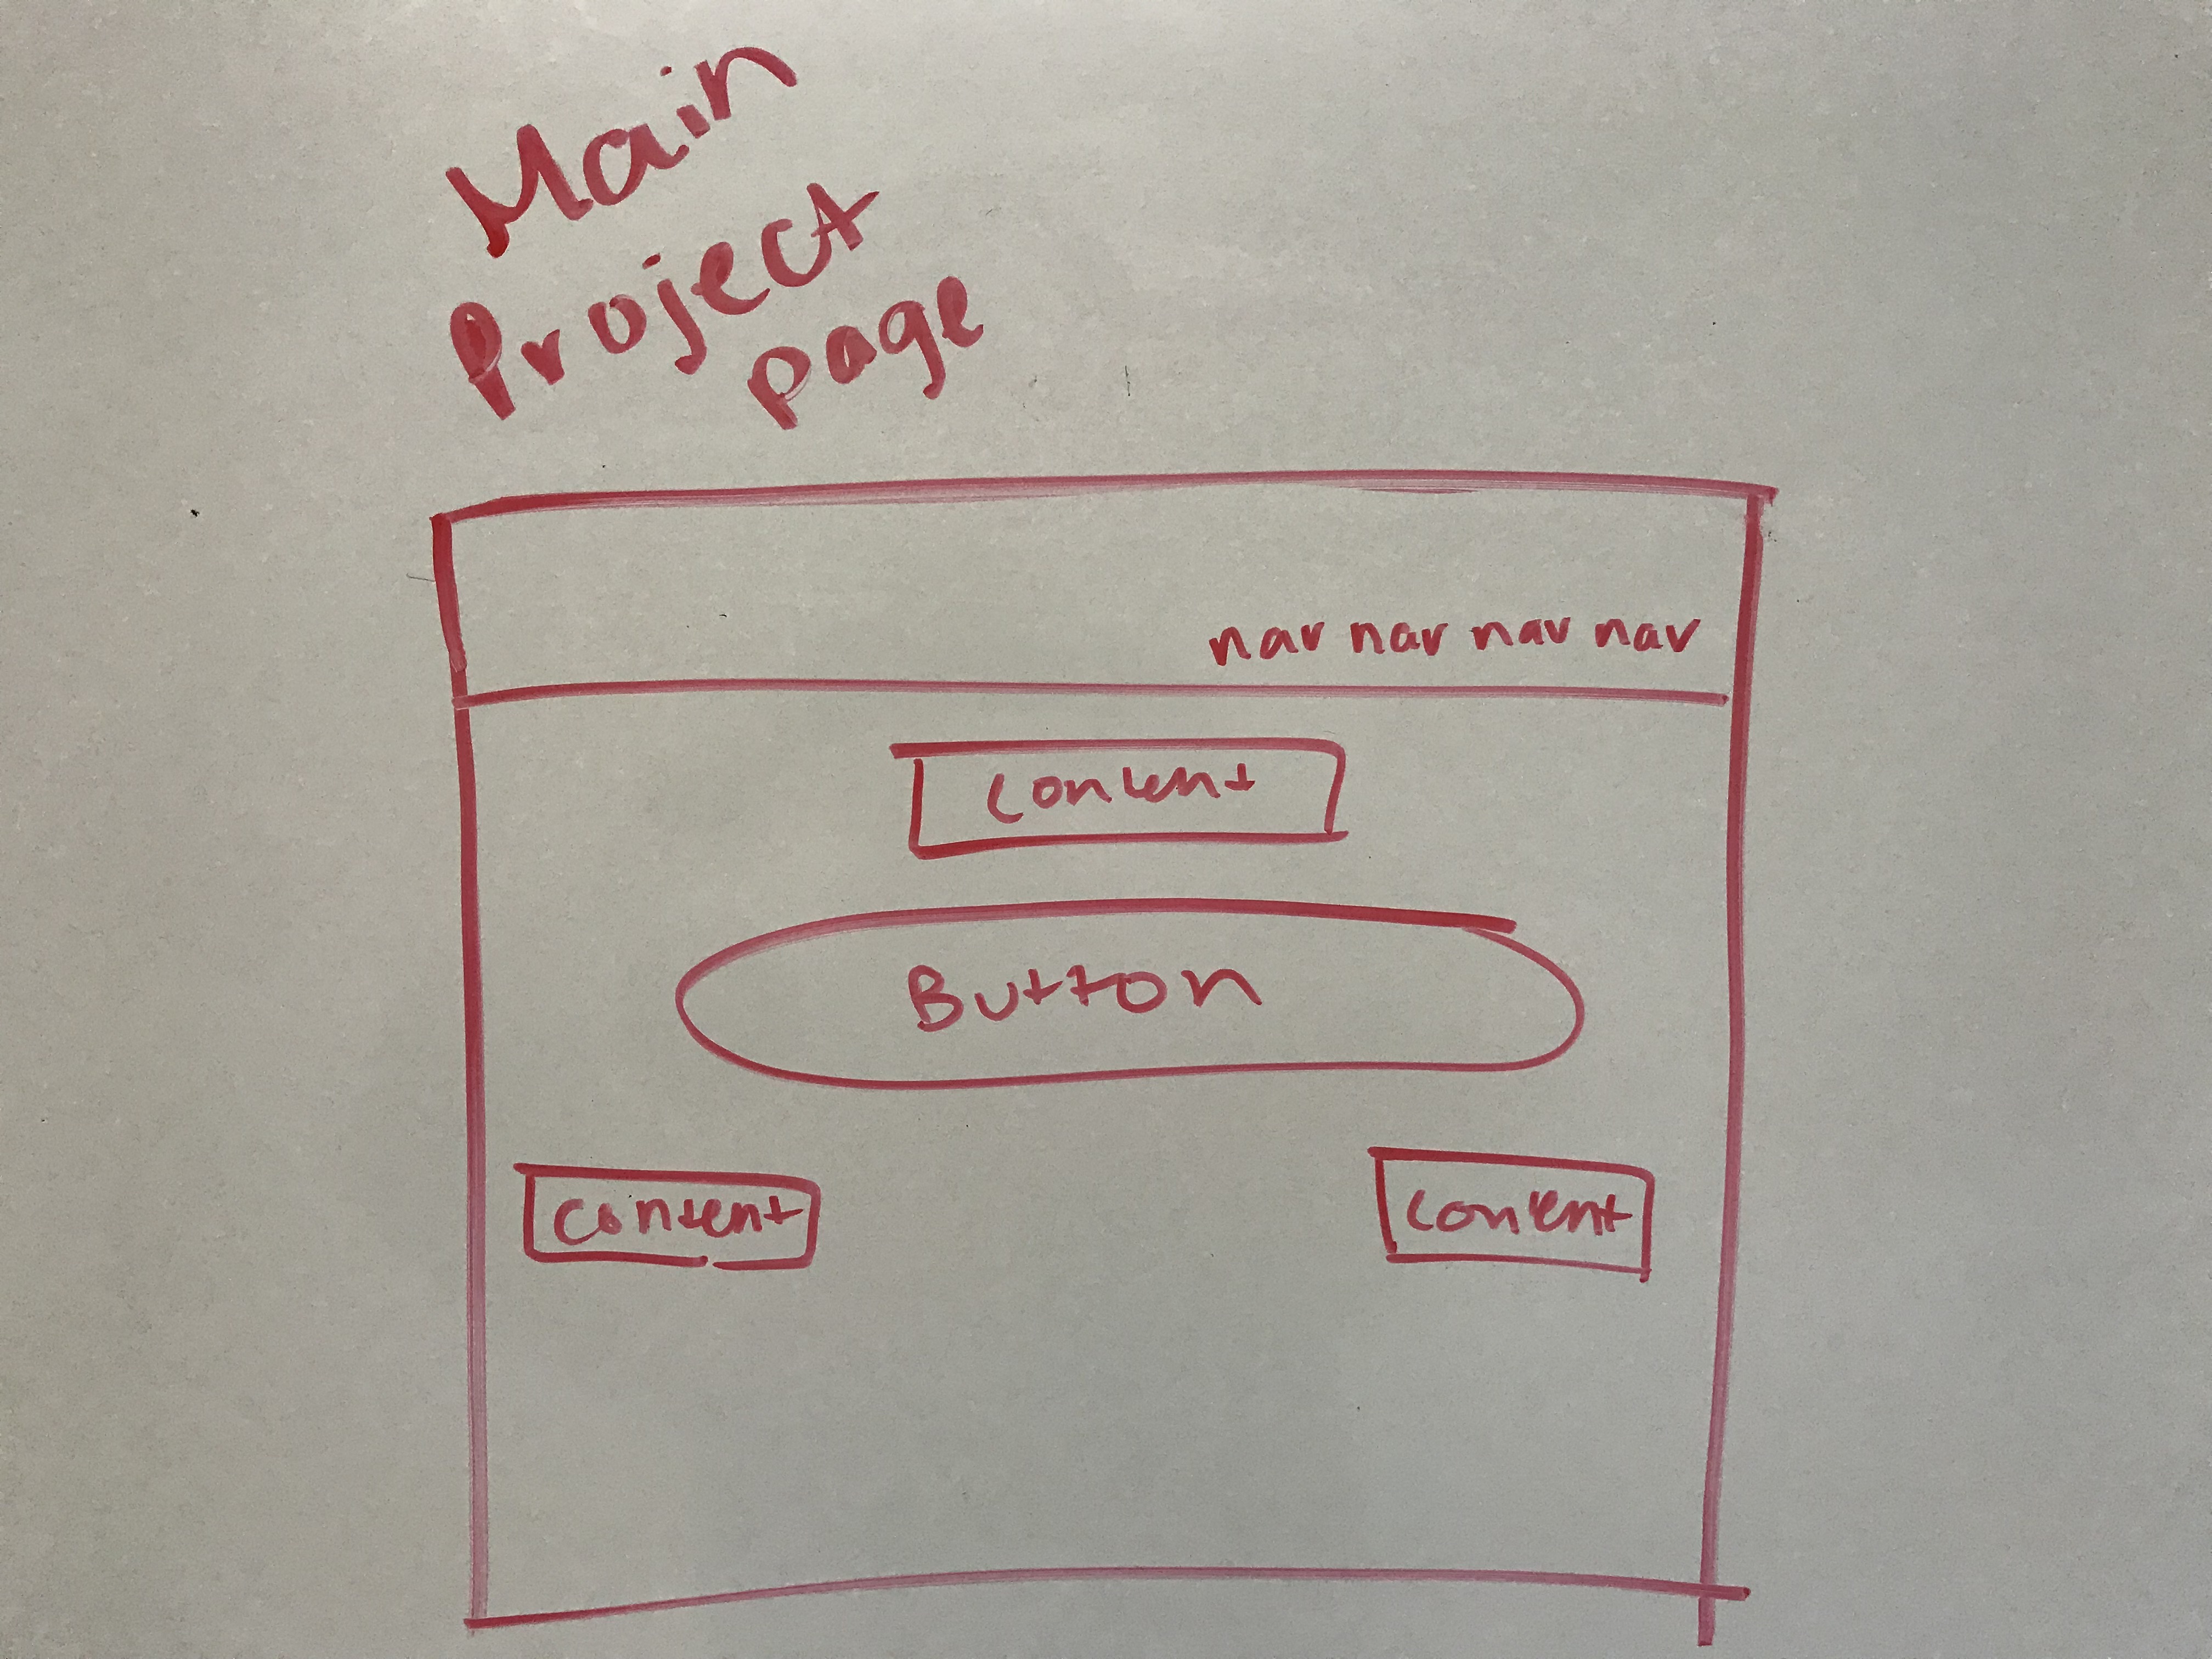 Main
Project
page
nav nav nav nav
Content
Button
Content
Content